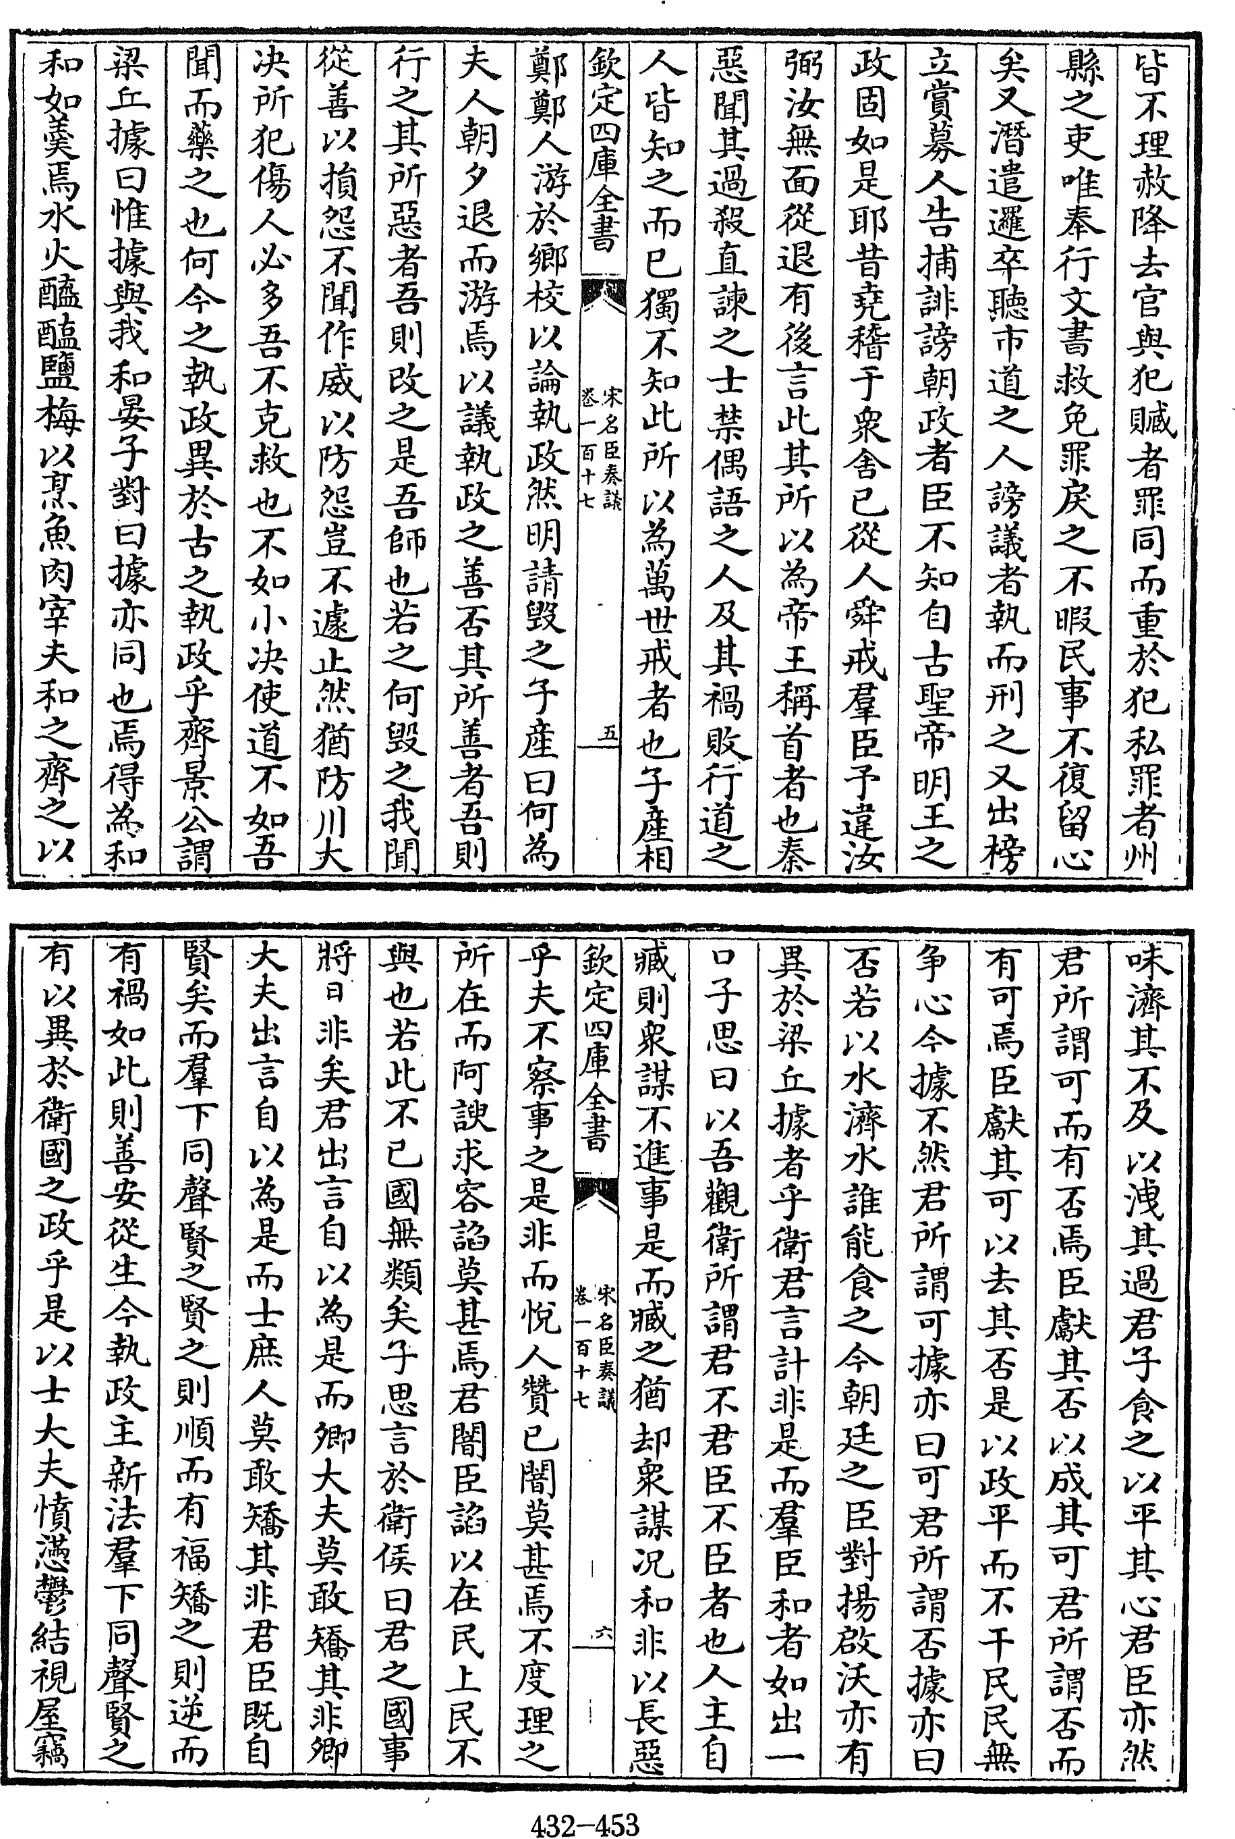 皆不理赦降去官與犯贓者罪同而重於犯私罪者州
縣之吏唯奉行文書救免罪戾之不暇民事不復留心
矣又潛遣邏卒聽市道之人謗議者執而刑之又出榜
立賞募人告捕誹謗朝政者臣不知自古聖帝明王之
政固如是耶昔堯稽于衆舍已從人舜戒羣臣予違汝
弼汝無面從退有後言此其所以為帝王稱首者也秦
惡聞其過殺直諫之士禁偶語之人及其禍敗行道之
人皆知之而已獨不知此所以為萬世戒者也子產相
欽定四庫全書
宋名臣奏議
卷一百十七
五
鄭鄭人游於鄉校以論執政然明請毀之子產曰何為
夫人朝夕退而游焉以議執政之善否其所善者吾則
行之其所惡者吾則改之是吾師也若之何毀之我聞
從善以損怨不聞作威以防怨豈不遽止然猶防川大
决所犯傷人必多吾不克救也不如小决使道不如吾
聞而藥之也何今之執政異於古之執政乎齊景公謂
梁丘據曰惟據與我和晏子對曰據亦同也焉得為和
和如羹焉水火醯醢鹽梅以烹魚肉宰夫和之齊之以
味濟其不及以洩其過君子食之以平其心君臣亦然
君所謂可而有否焉臣獻其否以成其可君所謂否而
有可焉臣獻其可以去其否是以政平而不干民民無
争心今據不然君所謂可據亦曰可君所謂否據亦曰
否若以水濟水誰能食之今朝廷之臣對揚啟沃亦有
異於梁丘據者乎衛君言計非是而羣臣和者如出一
口子思曰以吾觀衛所謂君不君臣不臣者也人主自
臧則衆謀不進事是而臧之猶却衆謀况和非以長惡
欽定四庫全書
宋名臣奏議
卷一百十七
六
乎夫不察事之是非而悅人贊已闇莫甚焉不度理之
所在而阿諛求容諂莫甚焉君闇臣諂以在民上民不
與也若此不已國無類矣子思言於衛侯曰君之國事
將日非矣君出言自以為是而卿大夫莫敢矯其非卿
大夫出言自以為是而士庶人莫敢矯其非君臣既自
賢矣而羣下同聲賢之賢之則順而有福矯之則逆而
有禍如此則善安從生今執政主新法羣下同聲賢之
有以異於衛國之政乎是以士大夫憤懣鬱結視屋竊
432-453